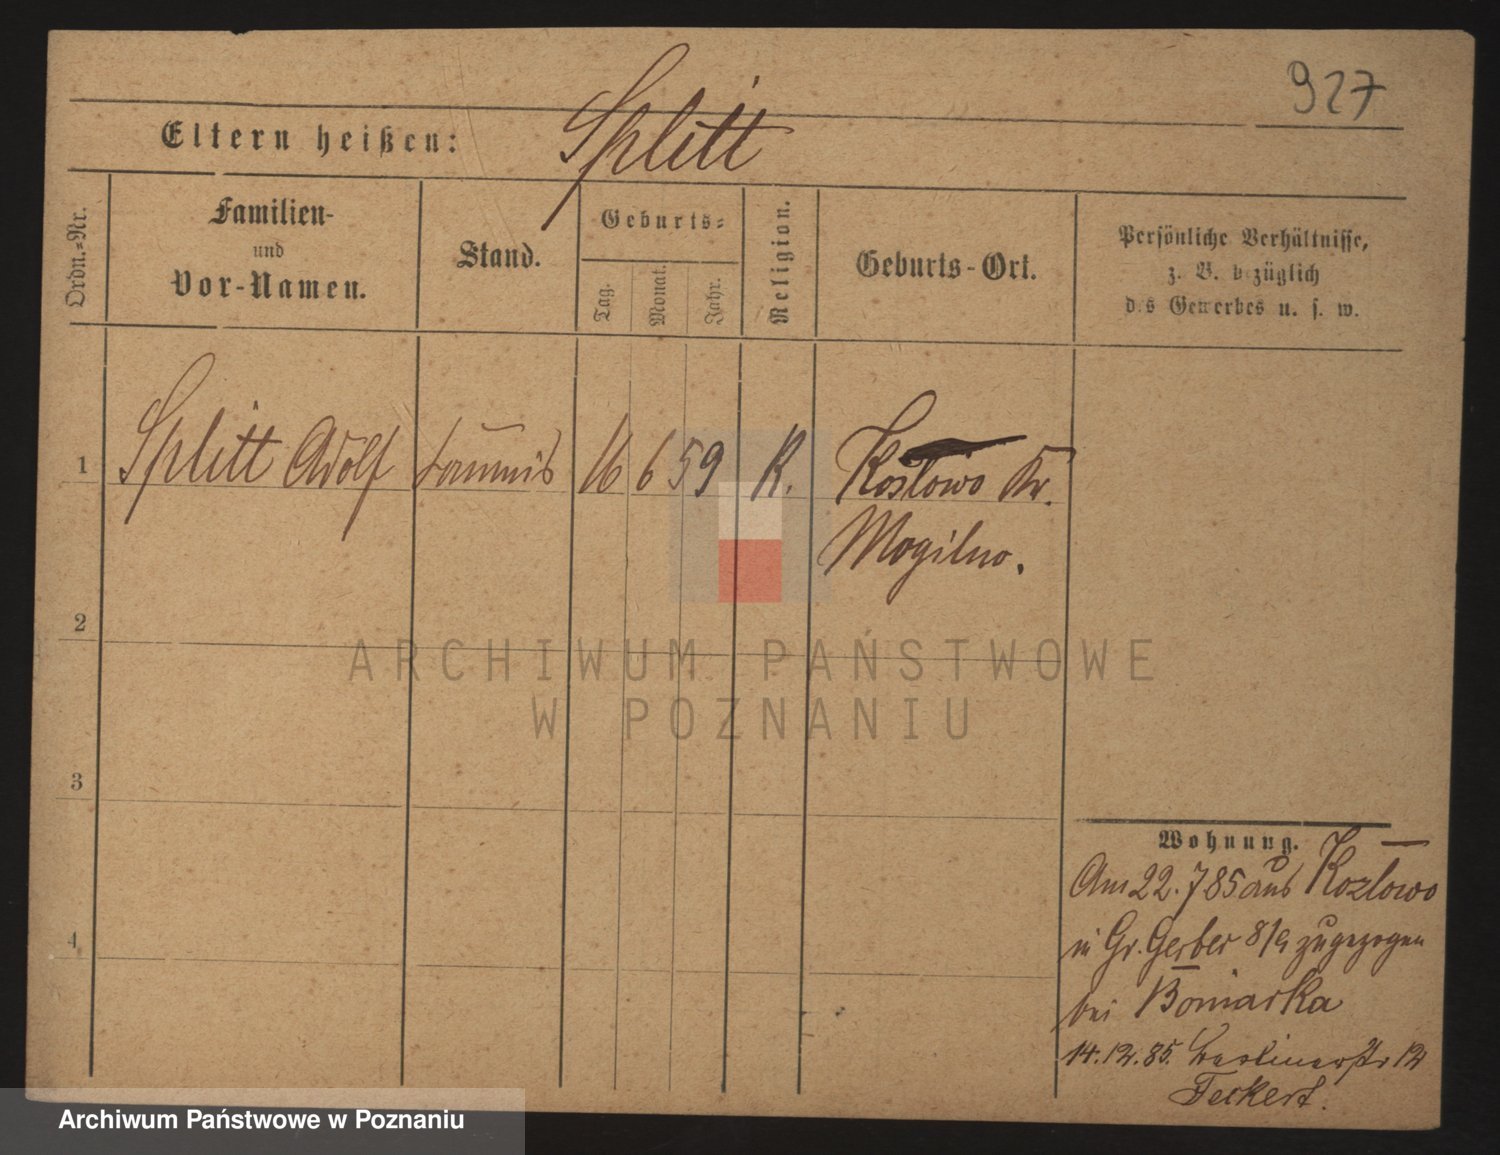 927
Eltern heißen: Splitt
Ordn.=Nr.
Familien-
und
Vor-Namen.
Stand.
Geburts=
Tag.
Monat.
Jahr.
Religion.
Geburts-Ort.
Persönliche Verhältnisse,
z. B. bezüglich
des Gewerbes u. s. w.
1 Splitt Adolf 16 6 59 K. Kozlowo Kr.
Mogilno.
2
3
4
ARCHIWUM PAŃSTWOWE
W POZNANIU
Wohnung.
Am 22.7 85 aus Kozlowo
in Gr. Gerber 8/9 zugezogen
bei Bomarka
14.12.85. Berlinerstr 12
Teckert.
Archiwum Państwowe w Poznaniu